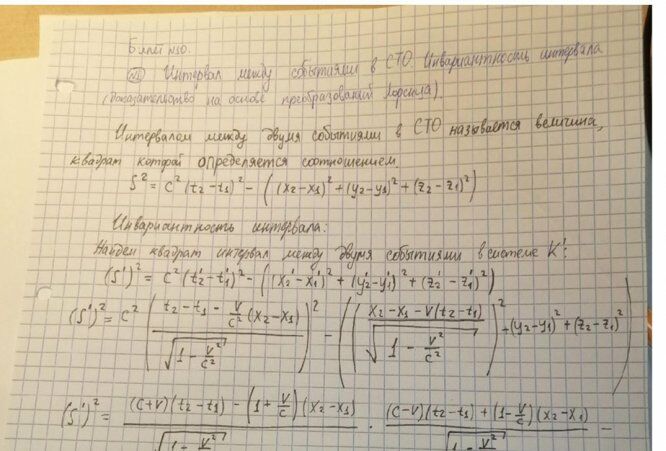 Билет №10.
№1 Интервал между событиями в СТО. Инвариантность интервала
(доказательство на основе преобразований Лоренца).
Интервалом между двумя событиями в СТО называется величина,
квадрат которой определяется соотношением
S² = c²(t₂-t₁)² - ((x₂-x₁)² + (y₂-y₁)² + (z₂-z₁)²)
Инвариантность интервала:
Найдем квадрат интервал между двумя событиями в системе K':
(S')² = c²(t₂'-t₁')² - ((x₂'-x₁')² + (y₂'-y₁')² + (z₂'-z₁')²)
(S')² = c² ( (t₂-t₁ - v/c² (x₂-x₁)) / √(1 - v²/c²) )² - ( ( (x₂-x₁ - v(t₂-t₁)) / √(1 - v²/c²) )² + (y₂-y₁)² + (z₂-z₁)² )
(S')² = ((c+v)(t₂-t₁) - (1 + v/c)(x₂-x₁)) / √(1 - v² · ((c-v)(t₂-t₁) + (1 - v/c)(x₂-x₁)) / √(1 - v² -